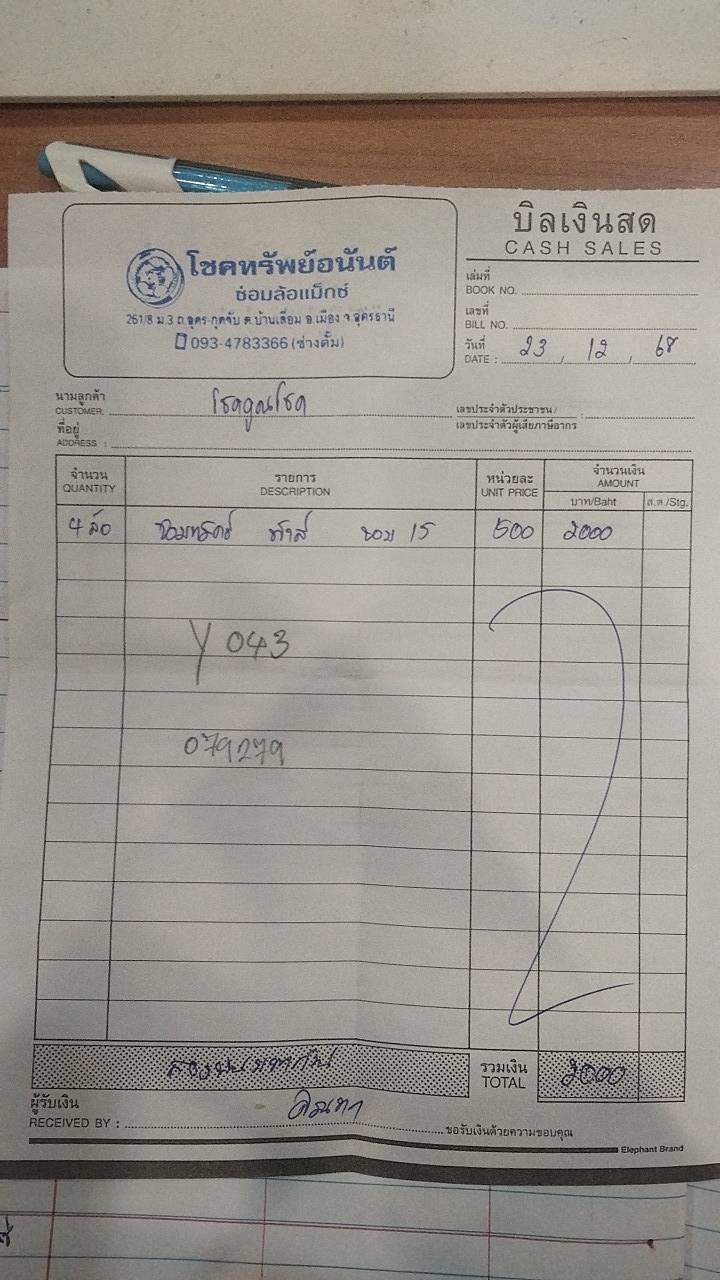 บิลเงินสด
CASH SALES
โชคทรัพย์อนันต์
ซ่อมล้อแม็กซ์
261/8 ม.3 ถ.อุดร-กุดจับ ต.บ้านเลื่อม อ.เมือง จ.อุดรธานี
093-4783366 (ช่างตั้ม)
เล่มที่
BOOK NO.
เลขที่
BILL NO.
วันที่
DATE : 23, 12, 68
นามลูกค้า
CUSTOMER: โชคคูณโชค
ที่อยู่
ADDRESS :
เลขประจำตัวประชาชน/ :
เลขประจำตัวผู้เสียภาษีอากร
จำนวน รายการ หน่วยละ จำนวนเงิน
QUANTITY DESCRIPTION UNIT PRICE AMOUNT
บาท/Baht ส.ต./Stg.
4 ล้อ ขอบ 15 500 2000
Y 043
079279
สองพันบาทถ้วน รวมเงิน 2000
TOTAL
ผู้รับเงิน
RECEIVED BY :
ขอรับเงินด้วยความขอบคุณ
Elephant Brand